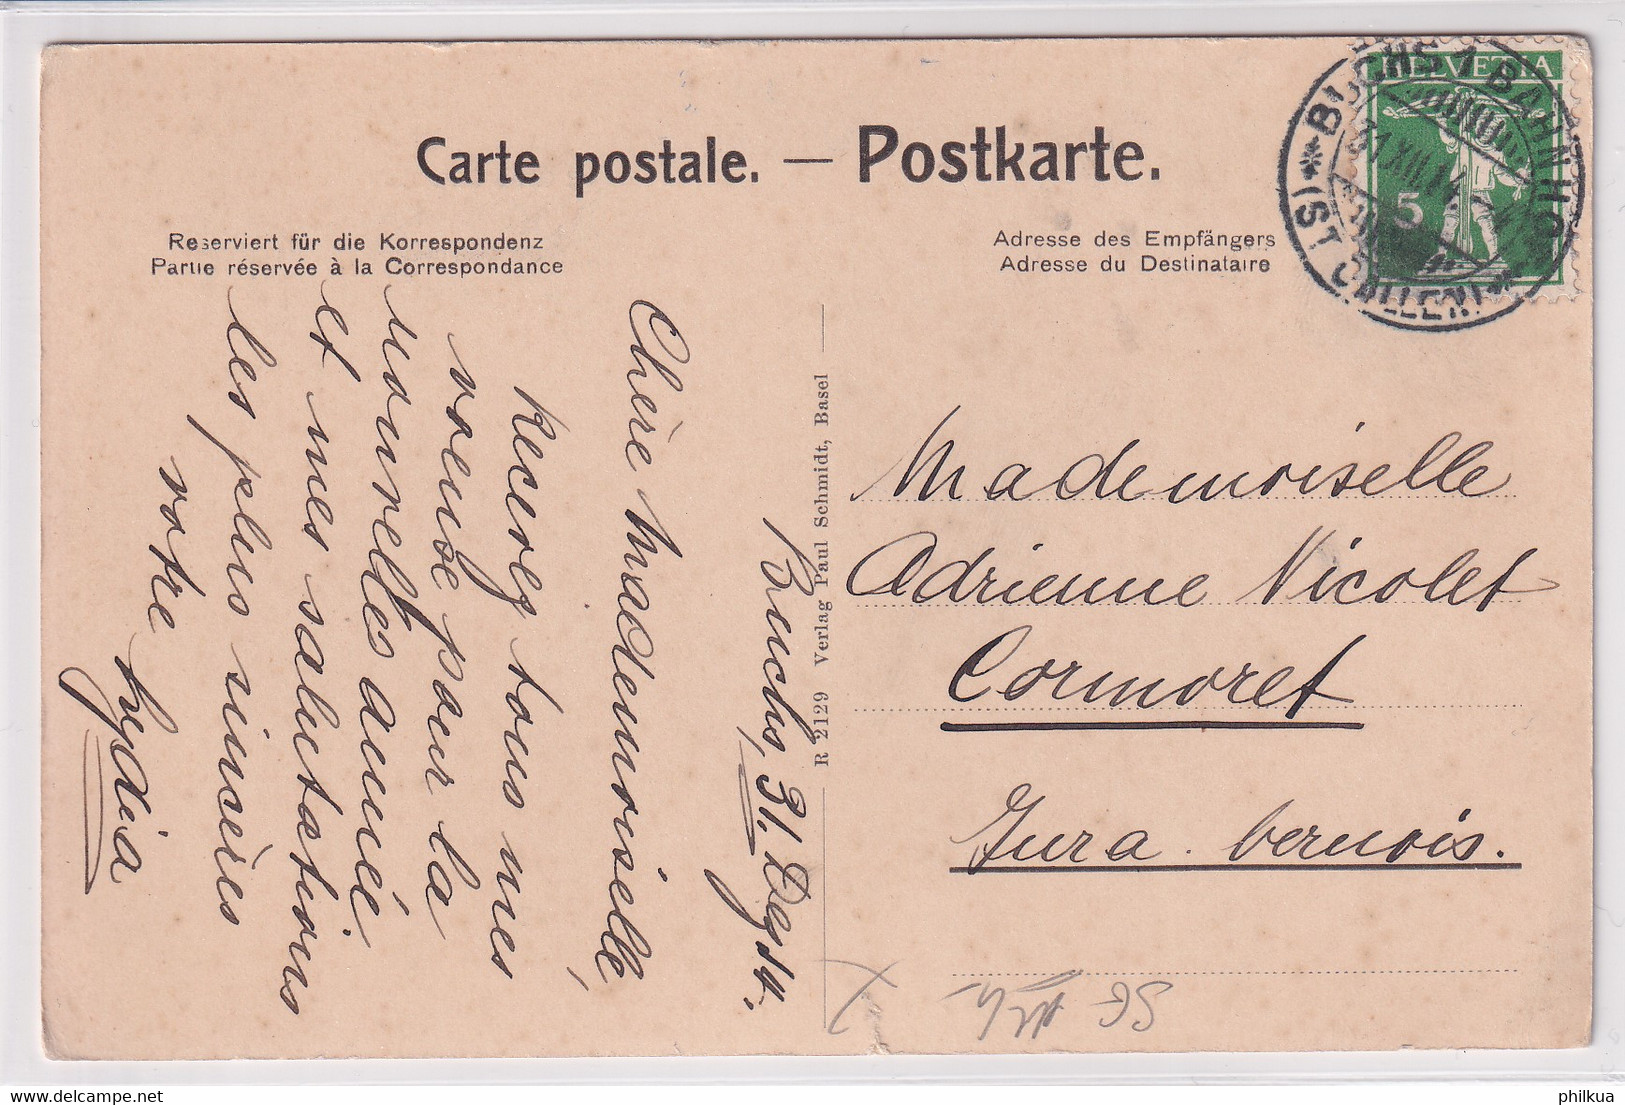 Carte postale. — Postkarte.
Reserviert für die Korrespondenz
Partie réservée à la Correspondance
Adresse des Empfängers
Adresse du Destinataire
HELVETIA
5
BUCHS 1 BAHNHOF
(ST. GALLEN)
31.XII.14
R 2129 Verlag Paul Schmidt, Basel
Buchs, 31. Dez 14.
Chère Mademoiselle,
Recevez tous mes
voeuse pour la
nouvelles année
et mes salutations
les plus sincères
votre
Lydia
Mademoiselle
Adrienne Nicolet
Cormoret
Jura-bernois.
SG
philkua